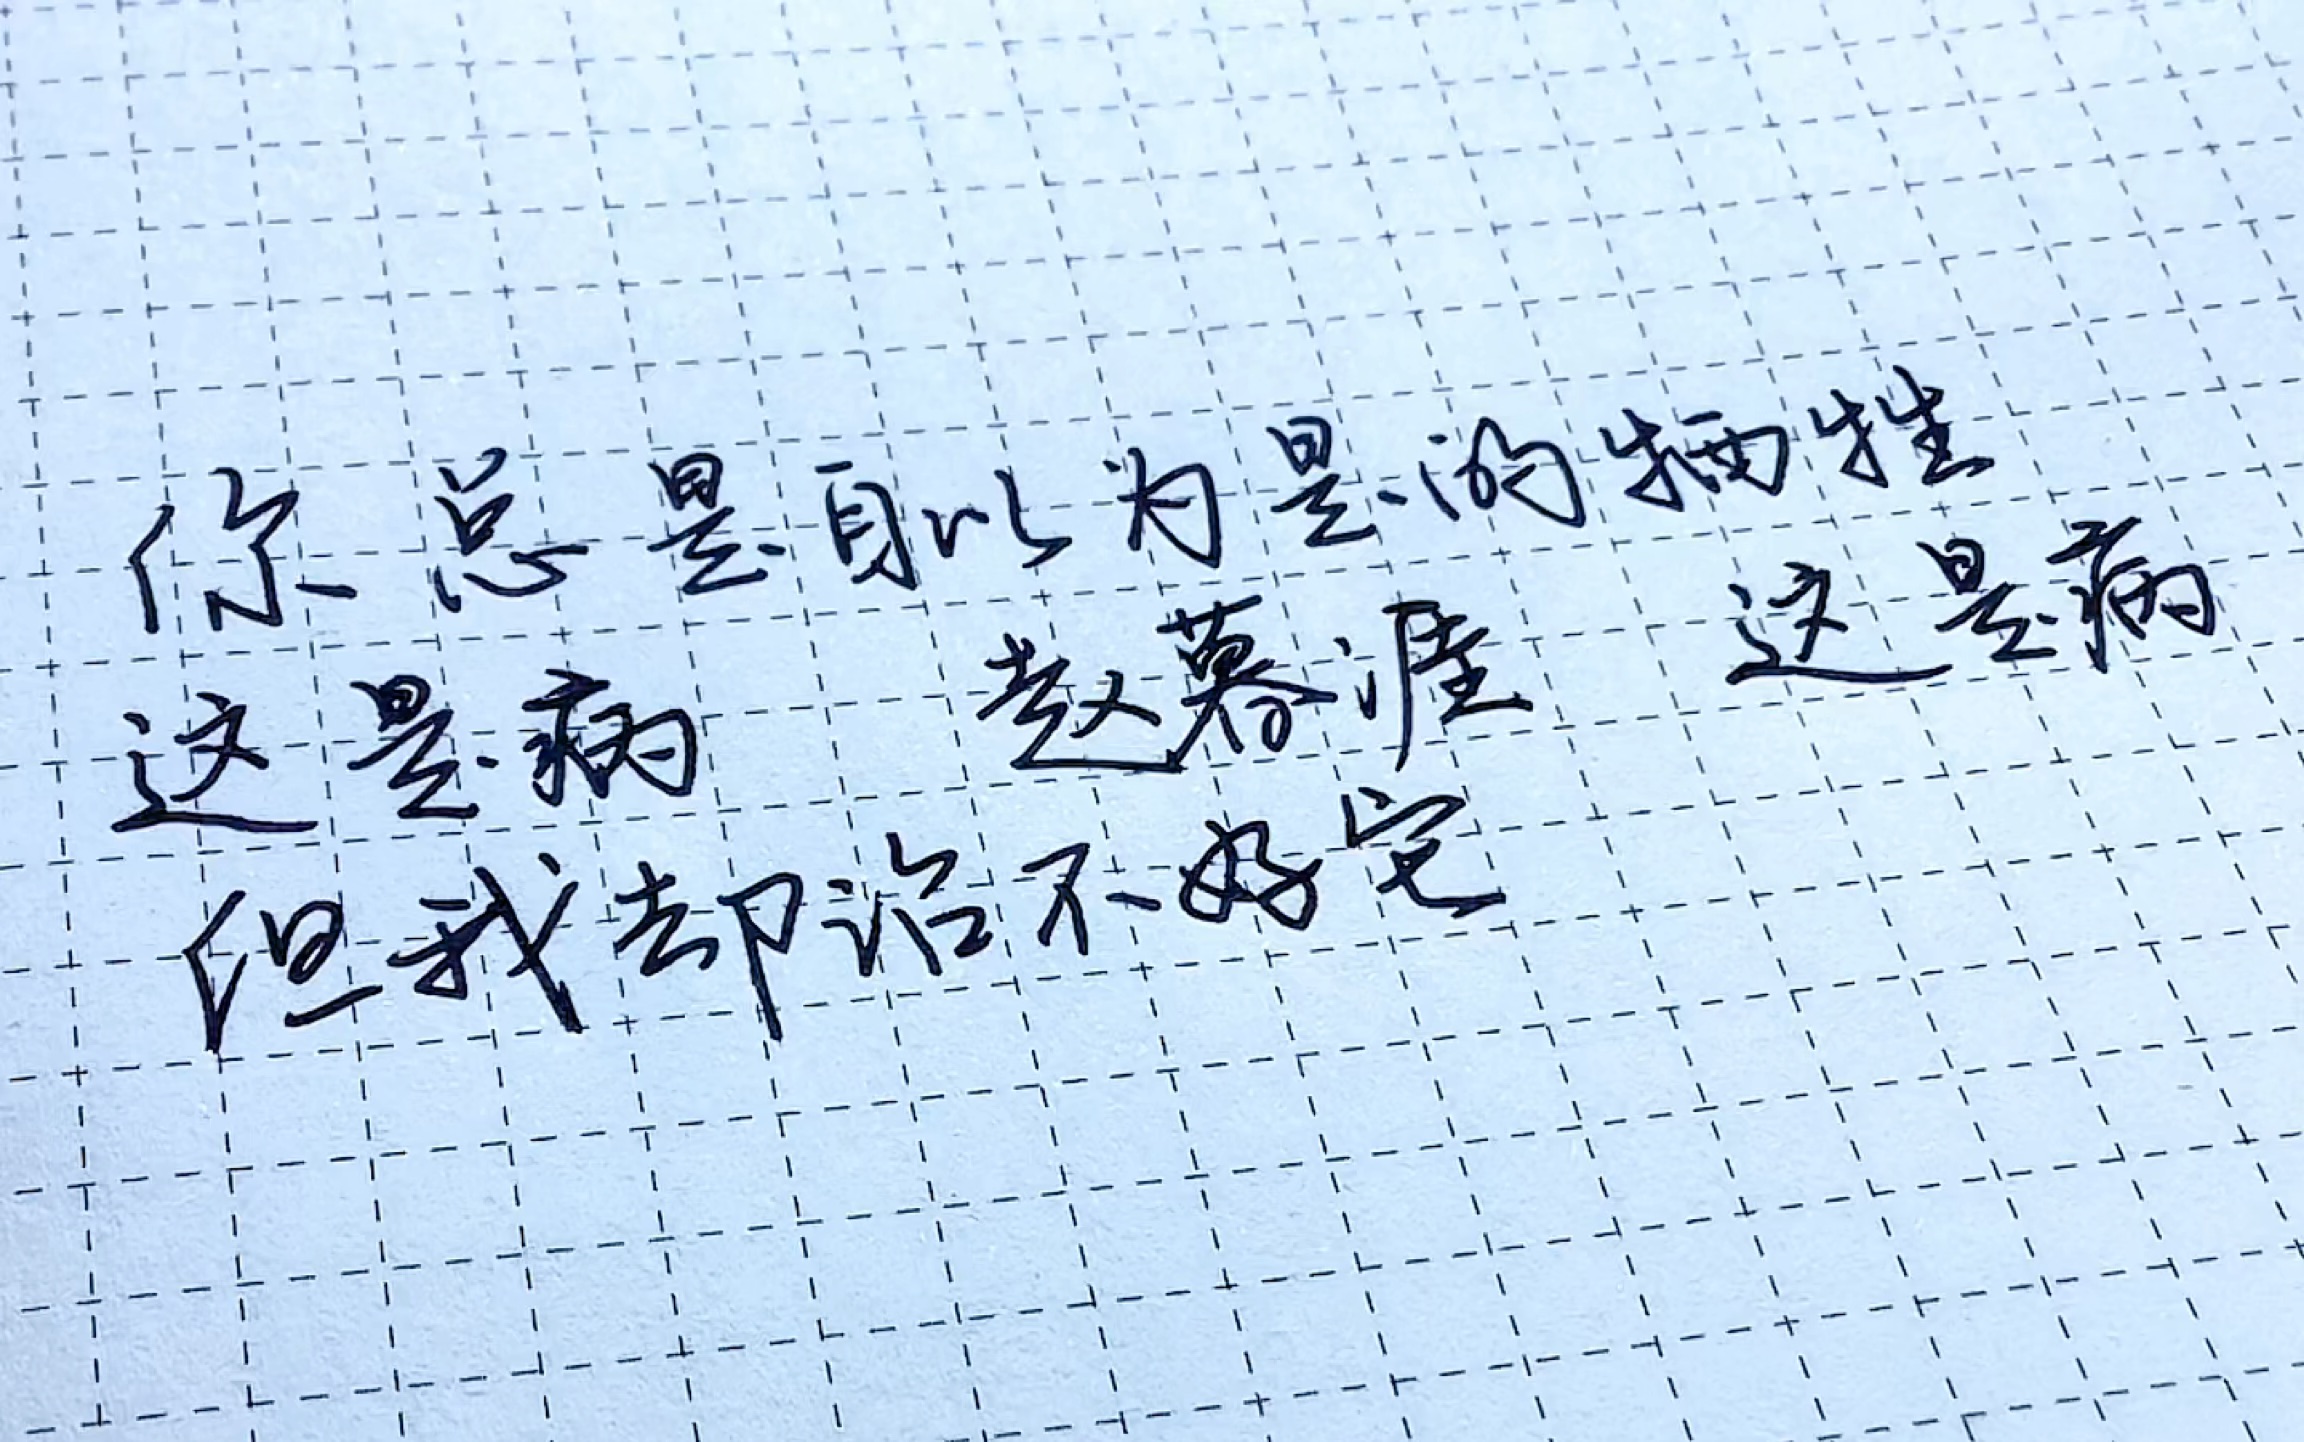 你总是自以为是的牺牲
这是病 赵暮涯 这是病
但我却治不好它